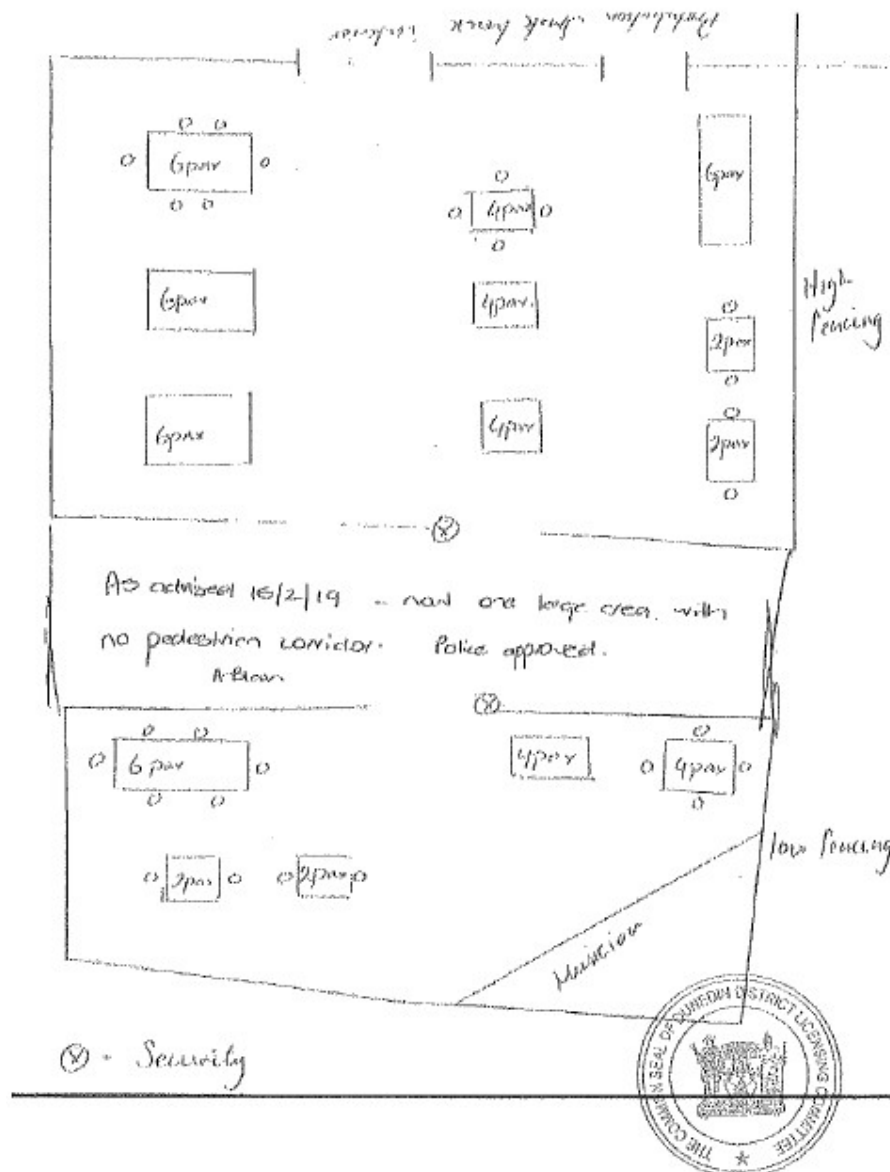 6pax
4pax
6pax
6pax
4pax.
High
fencing
2pax
6pax
4pax
2pax
As advised 15/2/19 - now one large area with
no pedestrian corridor. Police approved.
A. Brown
6 pax
4pax
4pax
2pax
2pax
low fencing
Musician
Ⓧ - Security
THE COMMON SEAL OF DUNEDIN DISTRICT LICENSING COMMITTEE